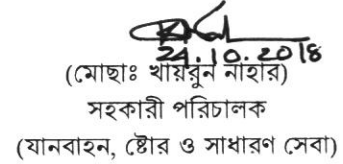 24.10.2018
(মোছাঃ খায়রুন নাহার)
সহকারী পরিচালক
(যানবাহন, ষ্টোর ও সাধারণ সেবা)